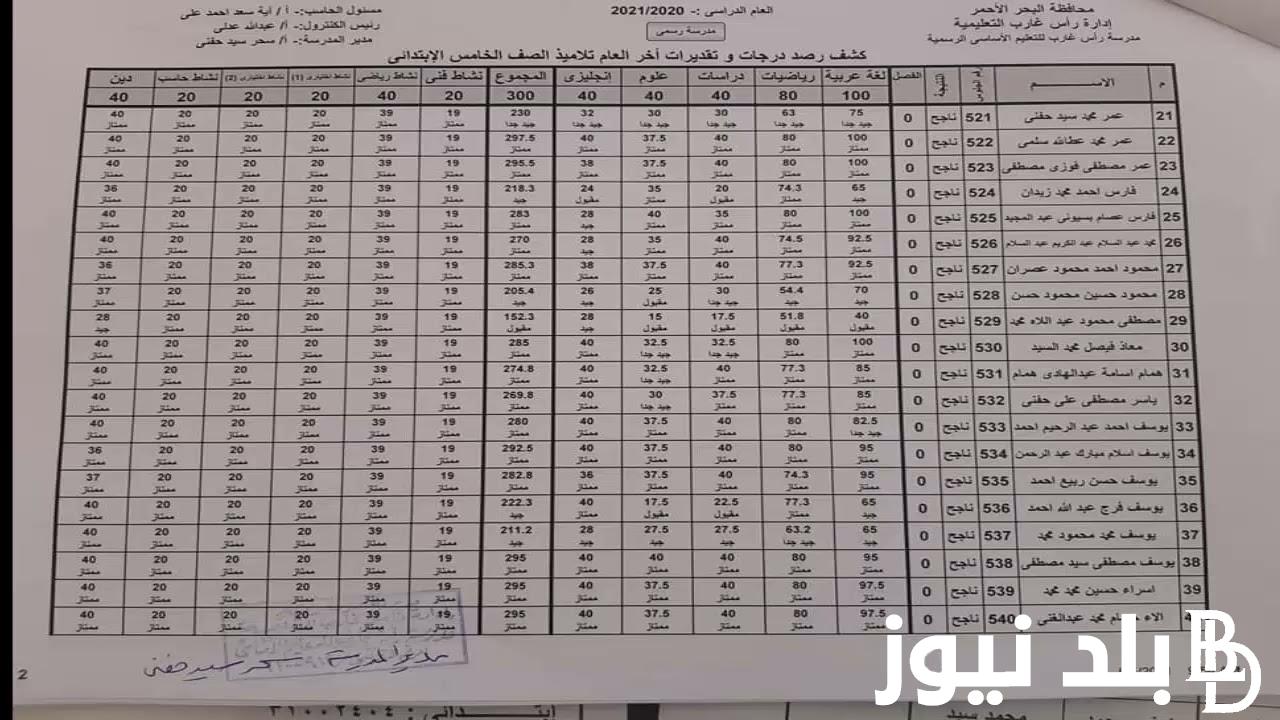 محافظة البحر الأحمر
إدارة رأس غارب التعليمية
مدرسة رأس غارب للتعليم الأساسى الرسمية
العام الدراسى :- 2021/2020
مدرسة رسمى
مسئول الحاسب:- أ / أية سعد احمد على
رئيس الكنترول:- أ/ عبدالله عدلى
مدير المدرسة:- أ/ سحر سيد حفنى
كشف رصد درجات و تقديرات أخر العام تلاميذ الصف الخامس الإبتدائى
م الاســـم رقم الجلوس النتيجة الفصل لغة عربية رياضيات دراسات علوم إنجليزى المجموع نشاط فنى نشاط رياضى نشاط اختيارى (1) نشاط اختيارى (2) نشاط حاسب دين
100 80 40 40 40 300 20 40 20 20 20 40
21 عمر محمد سيد حفنى 521 ناجح 0 75 63 30 30 32 230 19 39 20 20 20 40
جيد جدا جيد جدا جيد جدا جيد جدا جيد جدا جيد جدا ممتاز ممتاز ممتاز ممتاز ممتاز ممتاز
22 عمر محمد عطالله سلمى 522 ناجح 0 100 80 40 37.5 40 297.5 19 39 20 20 20 40
ممتاز ممتاز ممتاز ممتاز ممتاز ممتاز ممتاز ممتاز ممتاز ممتاز ممتاز ممتاز
23 عمر مصطفى فوزى مصطفى 523 ناجح 0 100 80 40 37.5 38 295.5 19 39 20 20 20 40
ممتاز ممتاز ممتاز ممتاز ممتاز ممتاز ممتاز ممتاز ممتاز ممتاز ممتاز ممتاز
24 فارس احمد محمد زيدان 524 ناجح 0 65 74.3 20 35 24 218.3 19 39 20 20 20 36
جيد ممتاز مقبول ممتاز مقبول جيد ممتاز ممتاز ممتاز ممتاز ممتاز ممتاز
25 فارس عصام بسيونى عبد المجيد 525 ناجح 0 100 80 35 40 28 283 19 39 20 20 20 40
ممتاز ممتاز ممتاز ممتاز جيد ممتاز ممتاز ممتاز ممتاز ممتاز ممتاز ممتاز
26 محمد عبد السلام عبد الكريم عبد السلام 526 ناجح 0 92.5 74.5 40 35 28 270 19 39 20 20 20 40
ممتاز ممتاز ممتاز ممتاز جيد ممتاز ممتاز ممتاز ممتاز ممتاز ممتاز ممتاز
27 محمود احمد محمود عصران 527 ناجح 0 92.5 77.3 40 37.5 38 285.3 19 39 20 20 20 36
ممتاز ممتاز ممتاز ممتاز ممتاز ممتاز ممتاز ممتاز ممتاز ممتاز ممتاز ممتاز
28 محمود حسين محمود حسن 528 ناجح 0 70 54.4 30 25 26 205.4 19 39 20 20 20 37
جيد جيد جيد جدا مقبول جيد جيد ممتاز ممتاز ممتاز ممتاز ممتاز ممتاز
29 مصطفى محمود عبد اللاه محمد 529 ناجح 0 40 51.8 17.5 15 28 152.3 19 39 20 20 20 28
مقبول جيد مقبول مقبول جيد مقبول ممتاز ممتاز ممتاز ممتاز ممتاز جيد
30 معاذ فيصل محمد السيد 530 ناجح 0 100 80 32.5 32.5 40 285 19 39 20 20 20 40
ممتاز ممتاز جيد جدا جيد جدا ممتاز ممتاز ممتاز ممتاز ممتاز ممتاز ممتاز ممتاز
31 همام اسامة عبدالهادى همام 531 ناجح 0 85 77.3 40 32.5 40 274.8 19 39 20 20 20 40
ممتاز ممتاز ممتاز جيد جدا ممتاز ممتاز ممتاز ممتاز ممتاز ممتاز ممتاز ممتاز
32 ياسر مصطفى على حفنى 532 ناجح 0 85 77.3 37.5 30 40 269.8 19 39 20 20 20 40
ممتاز ممتاز ممتاز جيد جدا ممتاز ممتاز ممتاز ممتاز ممتاز ممتاز ممتاز ممتاز
33 يوسف احمد عبد الرحيم احمد 533 ناجح 0 82.5 80 40 37.5 40 280 19 39 20 20 20 40
جيد جدا ممتاز ممتاز ممتاز ممتاز ممتاز ممتاز ممتاز ممتاز ممتاز ممتاز ممتاز
34 يوسف اسلام مبارك عبد الرحمن 534 ناجح 0 95 80 40 37.5 40 292.5 19 39 20 20 20 36
ممتاز ممتاز ممتاز ممتاز ممتاز ممتاز ممتاز ممتاز ممتاز ممتاز ممتاز ممتاز
35 يوسف حسن ربيع احمد 535 ناجح 0 95 74.3 40 37.5 36 282.8 19 39 20 20 20 37
ممتاز ممتاز ممتاز ممتاز ممتاز ممتاز ممتاز ممتاز ممتاز ممتاز ممتاز ممتاز
36 يوسف فرج عبد الله احمد 536 ناجح 0 65 77.3 22.5 17.5 40 222.3 19 39 20 20 20 40
جيد ممتاز مقبول مقبول ممتاز جيد ممتاز ممتاز ممتاز ممتاز ممتاز ممتاز
37 يوسف محمد محمود محمد 537 ناجح 0 65 63.2 27.5 27.5 28 211.2 19 39 20 20 20 40
جيد جيد جدا جيد جيد جيد جيد ممتاز ممتاز ممتاز ممتاز ممتاز ممتاز
38 يوسف مصطفى سيد مصطفى 538 ناجح 0 95 80 40 40 40 295 19 39 20 20 20 40
ممتاز ممتاز ممتاز ممتاز ممتاز ممتاز ممتاز ممتاز ممتاز ممتاز ممتاز ممتاز
39 اسراء حسين محمد محمد 539 ناجح 0 97.5 80 40 37.5 40 295 19 39 20 20 20 40
ممتاز ممتاز ممتاز ممتاز ممتاز ممتاز ممتاز ممتاز ممتاز ممتاز ممتاز ممتاز
الاء محمد عبدالغنى 540 ناجح 97.5 80 40 37.5 40 295 19 39 20 20 20 40
ممتاز ممتاز ممتاز ممتاز ممتاز ممتاز ممتاز ممتاز ممتاز ممتاز ممتاز ممتاز
مدير المدرسة سحر سيد حفنى
بلد نيوز
BD
2
محمد سيد
إبتدائى : ٣١٠٠٢٤٠٤